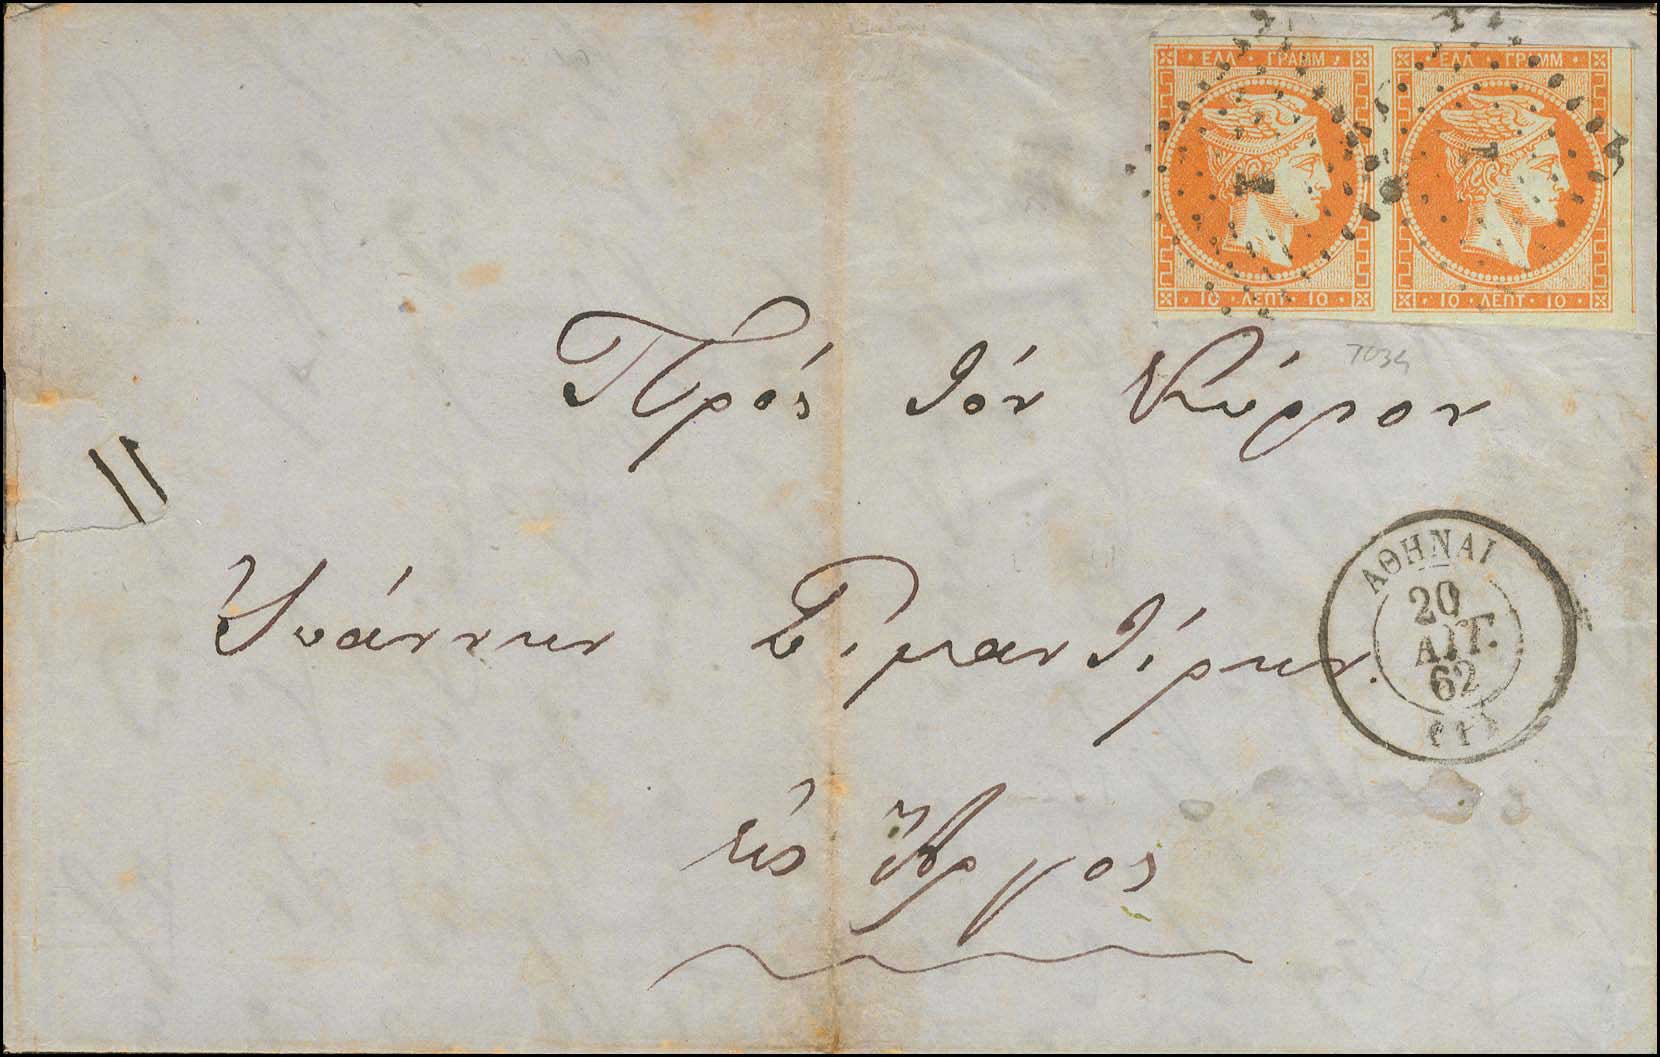 ΕΛΛ · ΓΡΑΜΜ ΕΛΛ · ΓΡΑΜΜ
1 1
10 · ΛΕΠΤ · 10 10 · ΛΕΠΤ · 10
7034
Πρός τόν Κύριον
Ἰωάννην
εἰς Ἄργος
ΑΘΗΝΑΙ
20
ΑΥΓ.
62